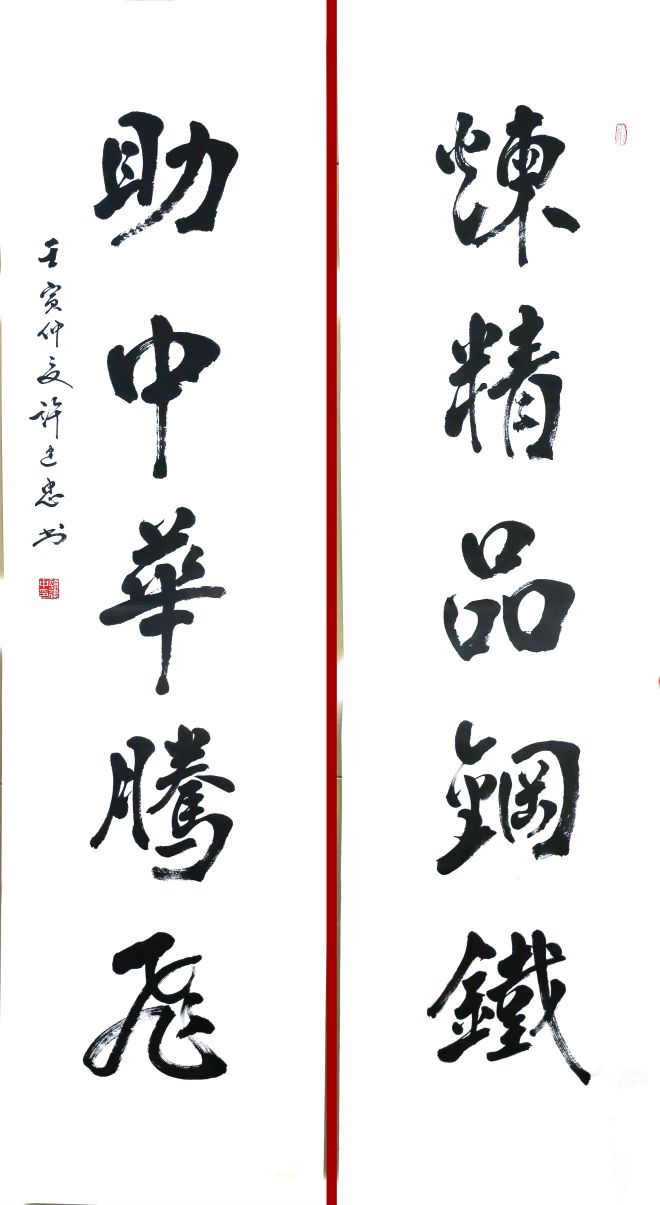 煉精品鋼鐵
助中華騰飛
壬寅仲夏許建忠书